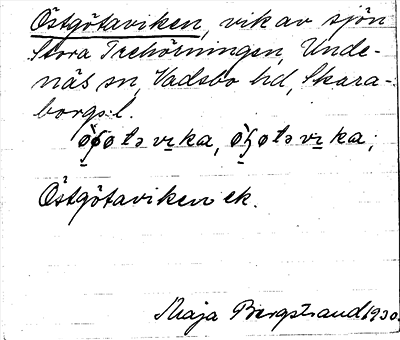 Östgötaviken, vik av sjön
Stora Trehörningen, Unde-
näs sn, Vadsbo hd, Skara-
borgs l.
Östgötaviken ek.
Maja Bergstrand 1930.